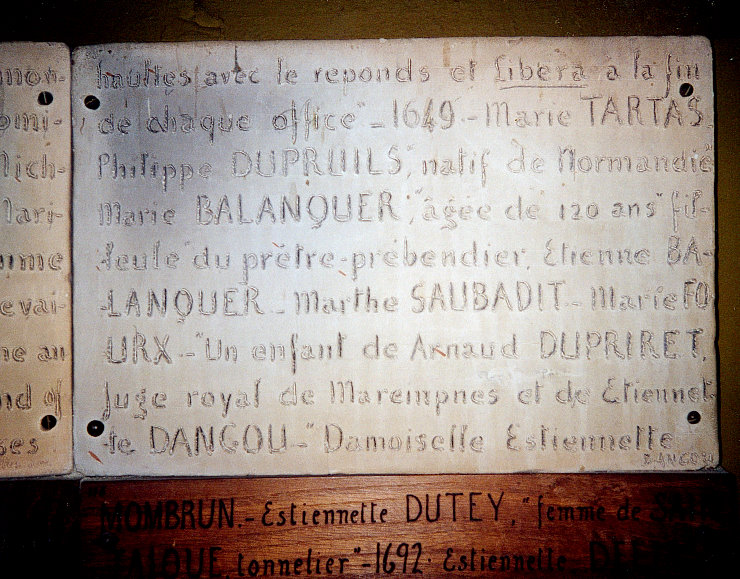 mon-
omi-
Mich-
Mari-
aume
evai-
ne au
nd of
ses
hautes avec le reponds et Libera a la fin
de chaque office" - 1649. - Marie TARTAS.
Philippe DUPRUILS, "natif de Normandie"
Marie BALANQUER, "âgée de 120 ans" fil-
leule "du prêtre-prébendier, Etienne BA-
LANQUER - Marthe SAUBADIT - Marie FO-
URX - "Un enfant de Arnaud DUPRIRET,
Juge royal de Mareimpnes et de Etiennet-
te DANGOU - "Damoiselle Estiennette
MOMBRUN. - Estiennette DUTEY, "femme de
tonnelier" - 1692. Estiennette